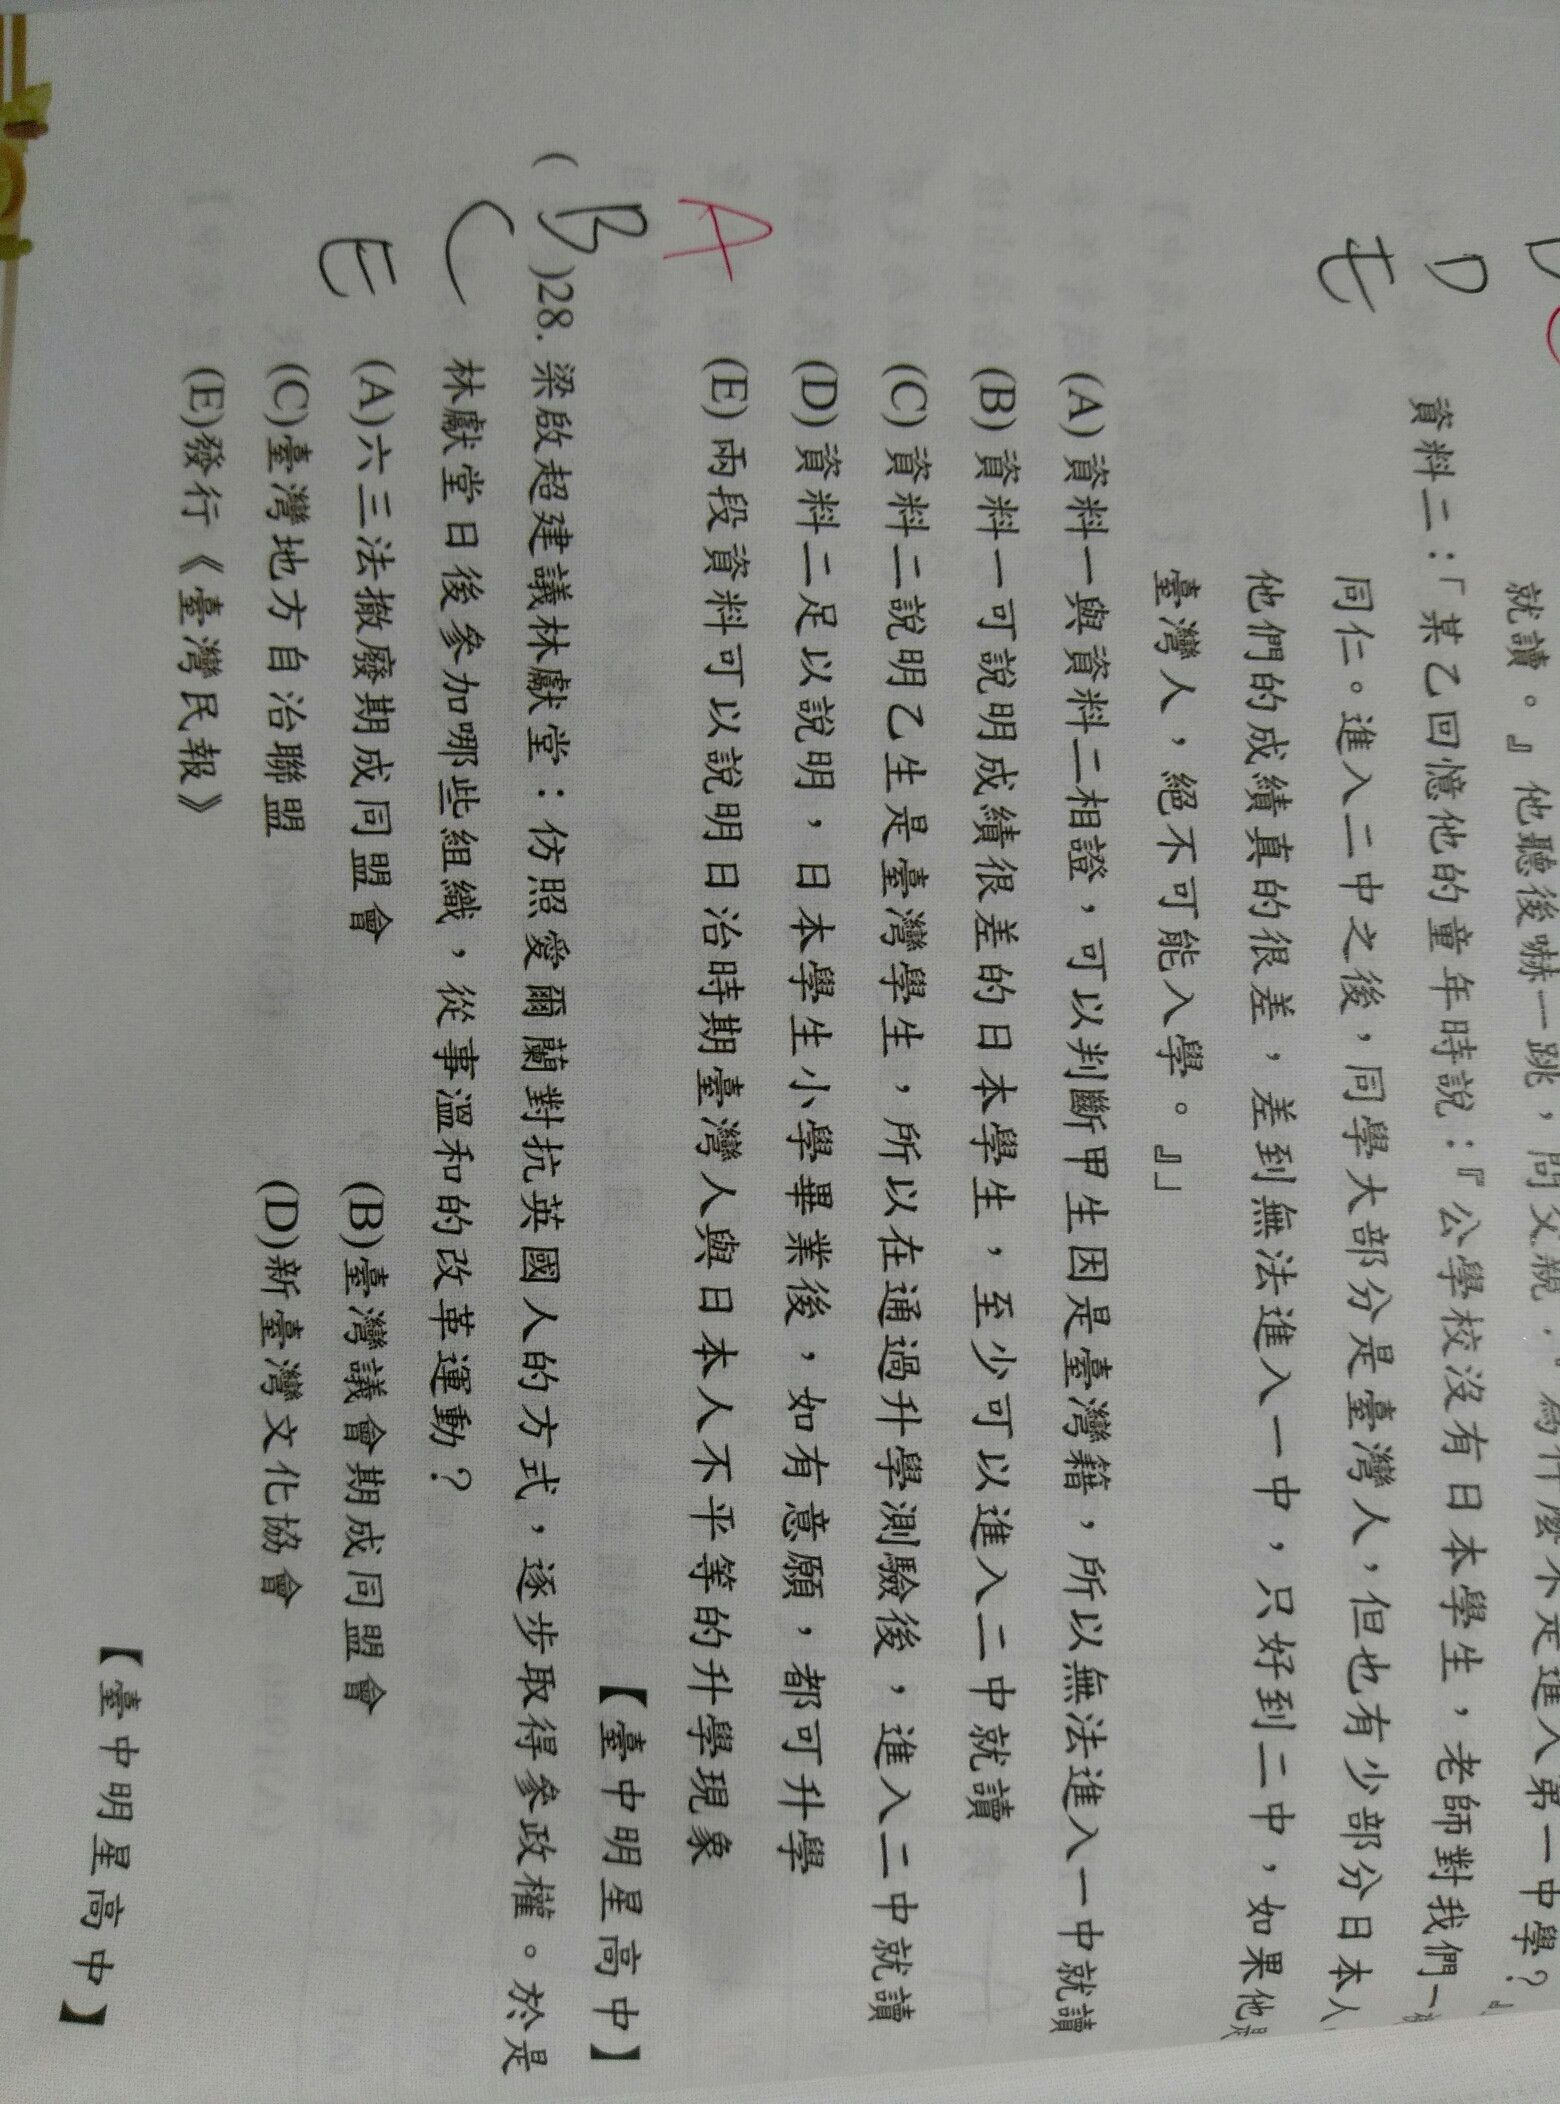 就讀。』他聽後嚇一跳，問父親：『為什麼不是進入第一中學？』
D
資料二：「某乙回憶他的童年時說：『公學校沒有日本學生，老師對我們一
E
同仁。進入二中之後，同學大部分是臺灣人，但也有少部分日本人
他們的成績真的很差，差到無法進入一中，只好到二中，如果他是
臺灣人，絕不可能入學。』」
(A)資料一與資料二相證，可以判斷甲生因是臺灣籍，所以無法進入一中就讀
(B)資料一可說明成績很差的日本學生，至少可以進入二中就讀
(C)資料二說明乙生是臺灣學生，所以在通過升學測驗後，進入二中就讀
(D)資料二足以說明，日本學生小學畢業後，如有意願，都可升學
(E)兩段資料可以說明日治時期臺灣人與日本人不平等的升學現象
A
【臺中明星高中】
( B )28. 梁啟超建議林獻堂：仿照愛爾蘭對抗英國人的方式，逐步取得參政權。於是
C
林獻堂日後參加哪些組織，從事溫和的改革運動？
E
(A)六三法撤廢期成同盟會 (B)臺灣議會期成同盟會
(C)臺灣地方自治聯盟 (D)新臺灣文化協會
(E)發行《臺灣民報》
【臺中明星高中】